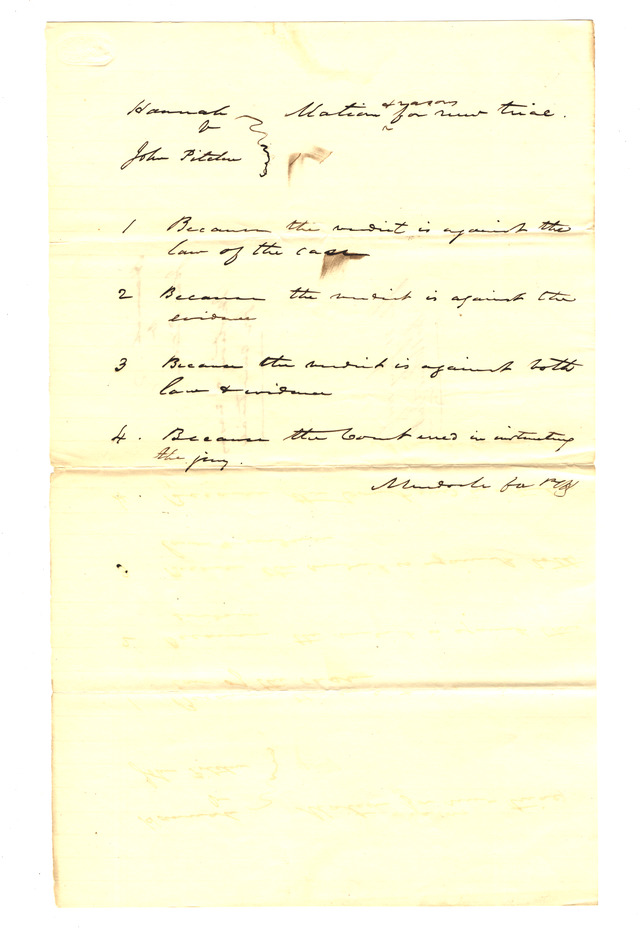 Hannah
v
John Pitcher
Motion & reasons for new trial.
1 Because the verdict is against the
law of the case
2 Because the verdict is against the
evidence
3 Because the verdict is against both
law & evidence
4. Because the Court erred in instructing
the jury.
Murdoch for